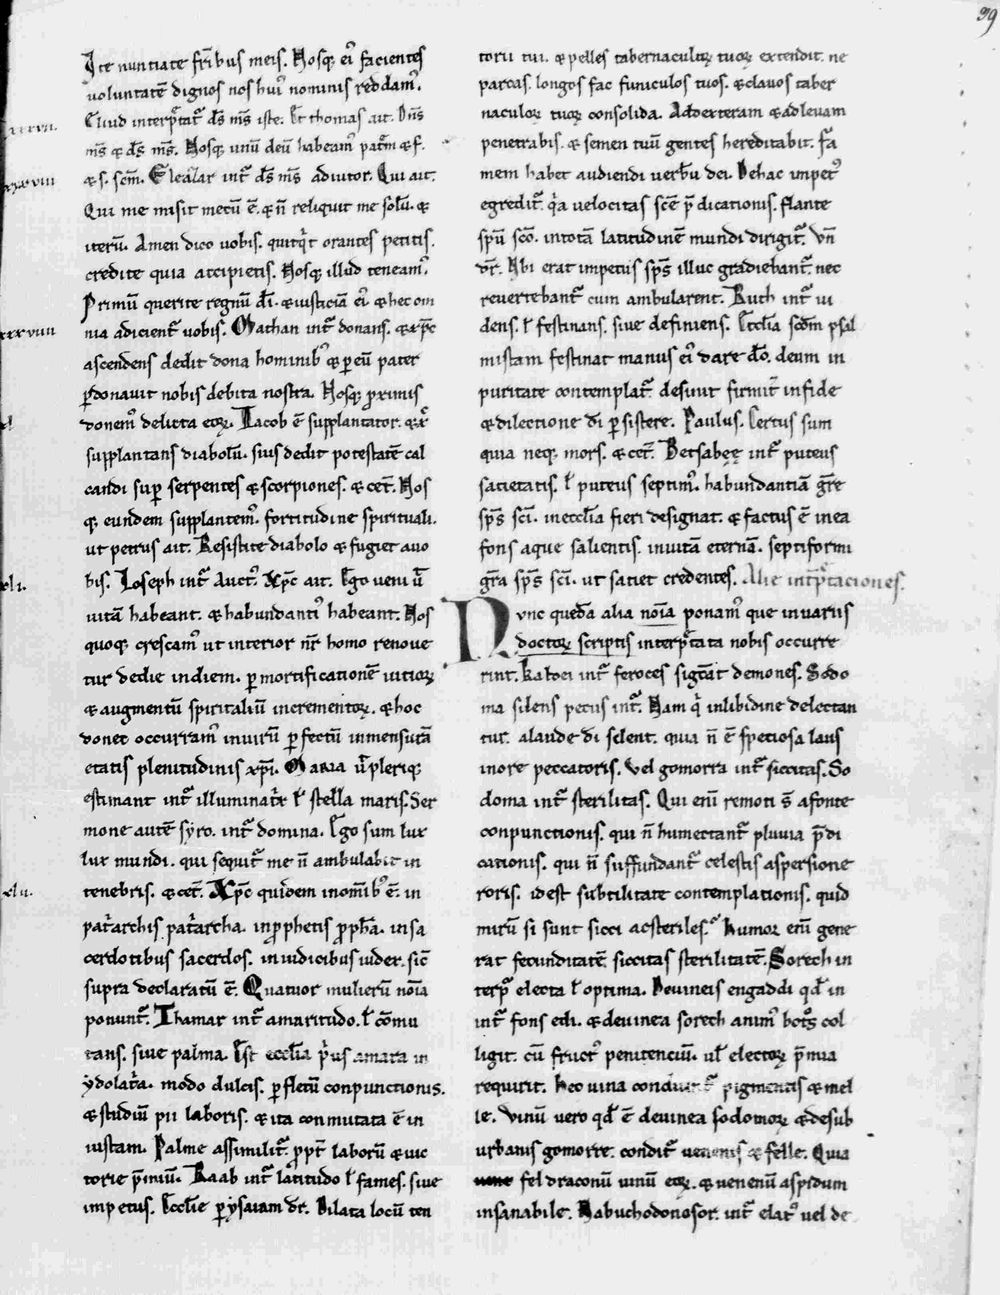 39
Ite nuntiate fr̄ibus meis. Nosq; ei᾽ facientes
uoluntatē dignos nos hui᾽ nominis reddam᾽.
Quid interp̄tat᷑ ds̄ ms̄ iste. Et thomas ait. Dn̄s
ms̄ & ds̄ ms̄. Nosq; unū deū habeam᾽ patrē & f.
xxxviii & s. scm̄. Eleazar int᷑ ds̄ ms̄ adiutor. Qui ait.
Qui me misit mecū ē. & n̄ reliquit me solū. &
iterū. Amen dico uobis. quitqͥt orantes petitis.
credite quia accipietis. Nosq; illud teneam᾽.
Primū querite regnū dī. & iusticiā ei᾽ & hec om
xxxviiii nia adicient᷑ uobis. Mathan int᷑ donans. & xp̄c
ascendens dedit dona hominib᾽ & ꝑ eū pater
ꝑdonauit nobis debita nostra. Nosq; ꝓximis
xl donem᾽ delicta eoꝝ. Iacob ē supplantator. & xr̄
supplantans diabolū. suis dedit potestatē cal
candi suꝑ serpentes & scorpiones. & cet᷑. Nos
q; eundem supplantem᾽. fortitudine spirituali.
ut petrus ait. Resistite diabolo & fugiet a uo
xli. bis. Ioseph int᷑ Auct᾽. Xp̄c ait. Ego ueni ū
uitā habeant. & habundanti᾽ habeant. Nos
quoq; crescam᾽ ut interior nr̄ homo renoue
tur de die in diem. ꝑ mortificationē uitioꝝ
& augmentū spiritaliū incrementoꝝ. & hoc
donec occurram᾽ in uirū ꝑfectū in mensurā
etatis plenitudinis xp̄i. Maria ū pleriq;
estimant int᷑ illuminatͥx ł stella maris. Ser
mone autē syro. int᷑ domina. Ego sum lux
lux mundi. qui sequit᷑ me n̄ ambulabit in
xlii. tenebris. & cet᷑. Xp̄c quidem in om̄ib᾽ ē. in
patͥarchis patͥarcha. in ꝓphetis ꝓphā. in sa
cerdotibus sacerdos. in iudicibus iudex. sic̄
supra declaratū ē. Quatuor mulierū noīa
ponunt᷑. Thamar int᷑ amaritudo. ł cōmu
tans. siue palma. Est eccl̄ia pͥus amara in
ydolatͥa. modo dulcis. ꝑ fletū conpunctionis.
& studiū pii laboris. & ita conmutata ē in
iustam. Palme assimilit᷑. ppt᷑ laborū & uic
torie p̄miū. Raab int᷑ latitudo ł fames. siue
impetus. Eccl̄ie ꝑ ysaiam dr̄. Dilata locū ten
torii tui. & pelles tabernaculoꝝ tuoꝝ extendit. ne
parcas. longos fac funiculos tuos. & clauos taber
naculoꝝ tuoꝝ consolida. Ad dexteram & ad leuam
penetrabis. & semen tuū gentes hereditabit. fa
mem habet audiendi uerbū dei. De hac impet᾽
egredit᷑. qͥa uelocitas scē p̄dicationis. flante
spū scō. in totā latitudinē mundi dirigit᷑. Un̄
dr̄. Ubi erat impetus sp̄s illuc gradiebant᷑. nec
reuertebant᷑ cum ambularent. Ruth int᷑ ui
dens. ł festinans. siue definiens. Eccl̄ia scdm̄ psal
mistam festinat manus ei᾽ dare dō. deum in
puritate contemplat᷑. desinit firmit᷑ in fide
& dilectione dī ꝑsistere. Paulus. Certus sum
quia neq; mors. & cet᷑. Betsabęę int᷑ puteus
satietatis. ł puteus septim᾽. habundantiā grē
sp̄s sci. in eccl̄ia fieri designat. & factus ē in ea
fons aque salientis. in uitā eternā. septiformi
grā sp̄s sci. ut satiet credentes. Alie int᷑p̄taciones.
Nvnc quedā alia noīa ponam᾽ que in uariis
doctoꝝ scriptis interp̄tata nobis occurre
rint. Katoei int᷑ feroces sigcāt demones. Sodo
ma silens pecus int᷑. Nam qͥ in libidine delectan
tur. a laude dī silent. quia n̄ ē speciosa laus
in ore peccatoris. Vel gomorra int᷑ siccitas. So
doma int᷑ sterilitas. Qui enī remoti s̄ a fonte
conpunctionis. qui n̄ humectant᷑ pluuia p̄di
cationis. qui n̄ suffundant᷑ celestis aspersione
roris. id est subtilitate contemplationis. quid
mirū si sunt sicci ac steriles. Humor enī gene
rat fecunditatē. siccitas sterilitatē. Sorech in
terp᷑ electa ł optima. De uineis engaddi qd̄ in
int᷑ fons edi. & de uinea sorech anim᾽ botros col
ligit. cū fruct᾽ penitenciū. ul̄ electoꝝ p̄mia
requirit. Hec uina condiunt᷑ pigmentis & mel
le. Vinū uero qd̄ ē de uinea sodomoꝝ & de sub
urbanis gomorre. condit᷑ uenenis & felle. Quia
fel draconū uinū eoꝝ. & uenenū aspidum
insanabile. Nabuchodonosor. int᷑ elat᾽ uel de